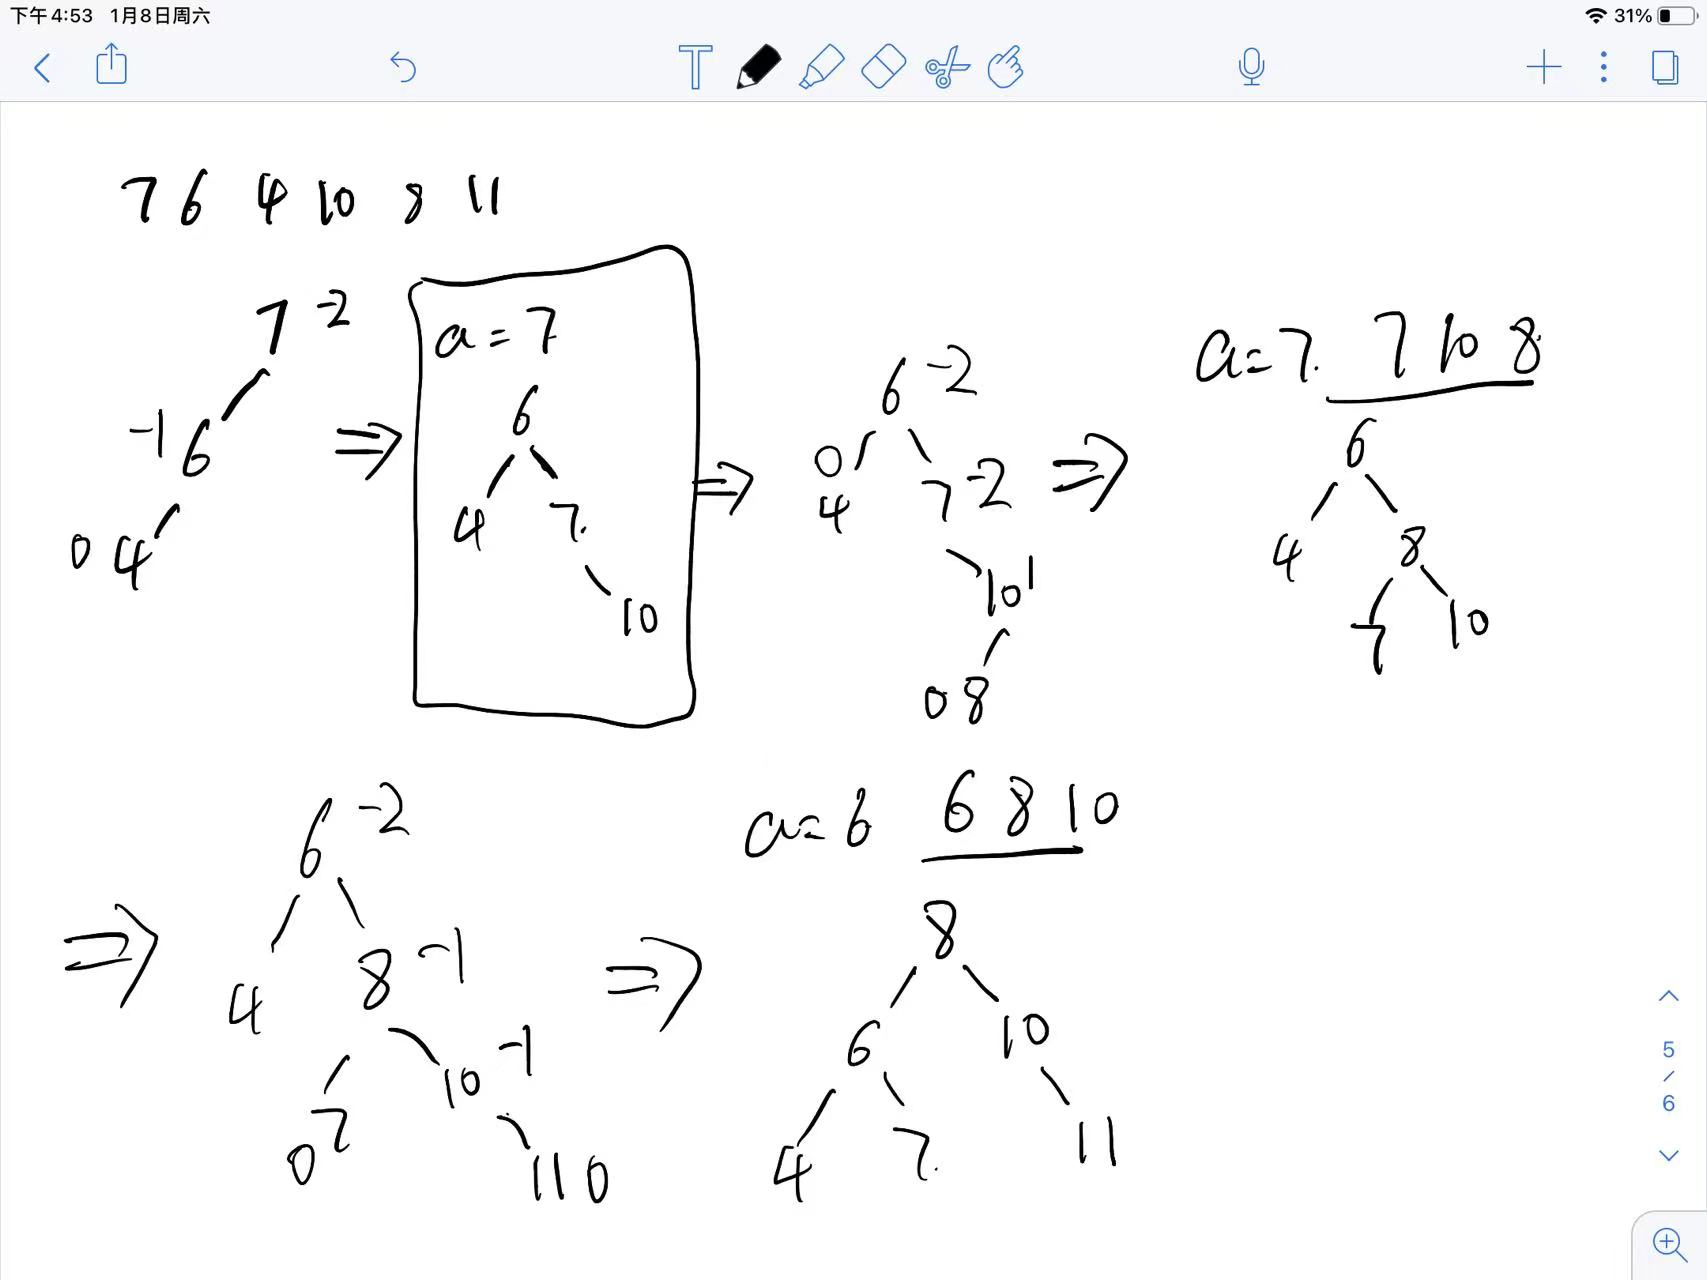 下午4:53 1月8日周六
31%
T
7 6 4 10 8 11
7 -2
-1 6
0 4
a=7
6
4 7.
10
6 -2
0
4 7 -2
10 1
0 8
a=7. 7 10 8
6
4 8
7 10
6 -2
4 8 -1
0 7 10 -1
11 0
a=6 6 8 10
8
6 10
4 7. 11
5
/
6